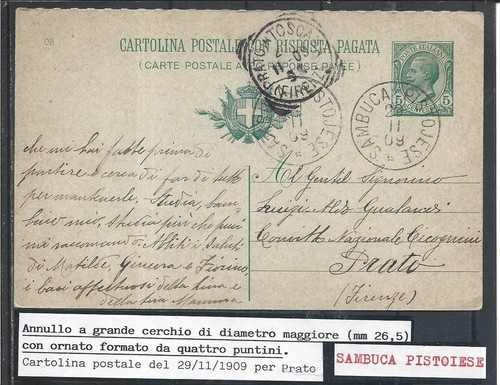 08
CARTOLINA POSTALE CON RISPOSTA PAGATA
(CARTE POSTALE AVEC RÉPONSE PAYÉE)
POSTE ITALIANE
5 CENTESIMI 5
PRATO TOSCANA
(FIRENZE)
SAMBUCA PISTOJESE
29
11
09
SAMBUCA PISTOJESE
29
11
09
che mi hai fatto prima di
partire e cerca di far di tutto
per mantenerle. Studia, bam
bino mio, studia più che puoi
mi raccomando. Abbiti i saluti
di Matilde, Ginevra e Fiorino,
i baci affettuosi della
della tua Mamma
Al Gentil Signorino
Luigi Gualandi
Convitto Nazionale Cicognini
Prato
(Firenze)
Annullo a grande cerchio di diametro maggiore (mm 26,5)
con ornato formato da quattro puntini.
Cartolina postale del 29/11/1909 per Prato
SAMBUCA PISTOIESE